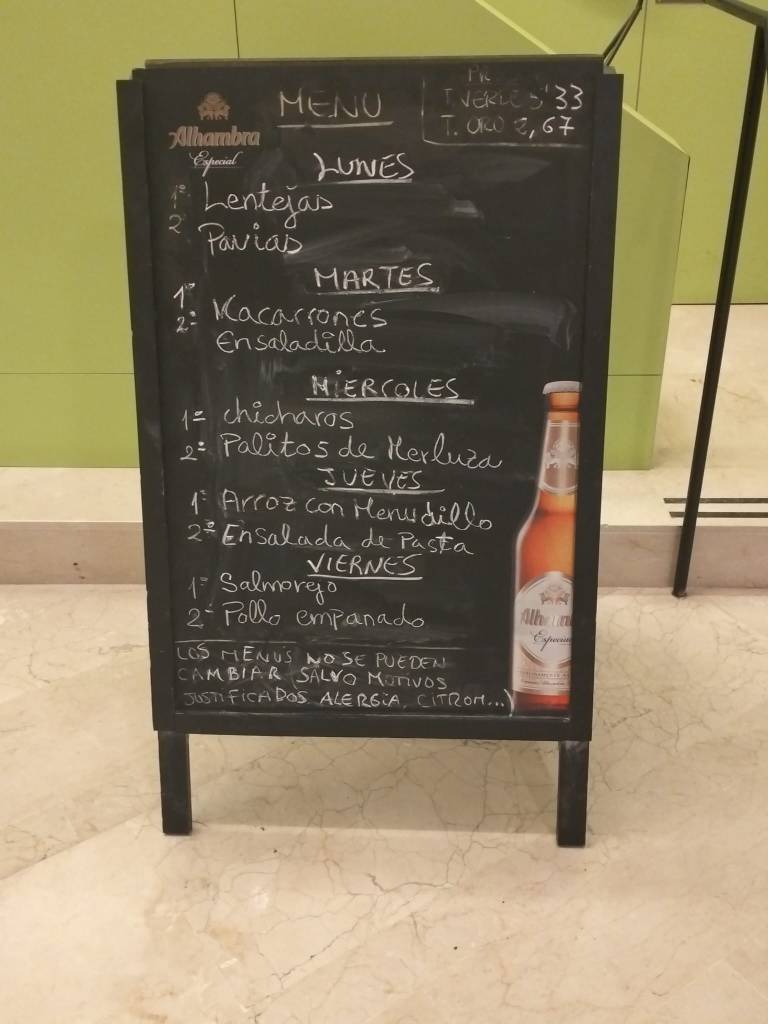 Alhambra
Especial
MENU
T. VERDE 5'33
T. ORO 2,67
LUNES
1º Lentejas
2º Pavias
MARTES
1º Macarrones
2º Ensaladilla
MIERCOLES
1º chicharos
2º Palitos de Merluza
JUEVES
1º Arroz con Menudillo
2º Ensalada de Pasta
VIERNES
1º Salmorejo
2º Pollo empanado
LOS MENUS NO SE PUEDEN
CAMBIAR SALVO MOTIVOS
JUSTIFICADOS ALERGIA,
Especial